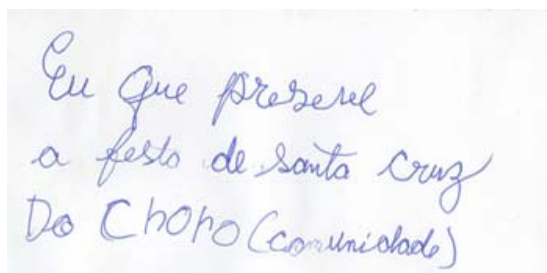 Eu Que preserve
a festo de santa cruz
Do CHOHO (comunidade)